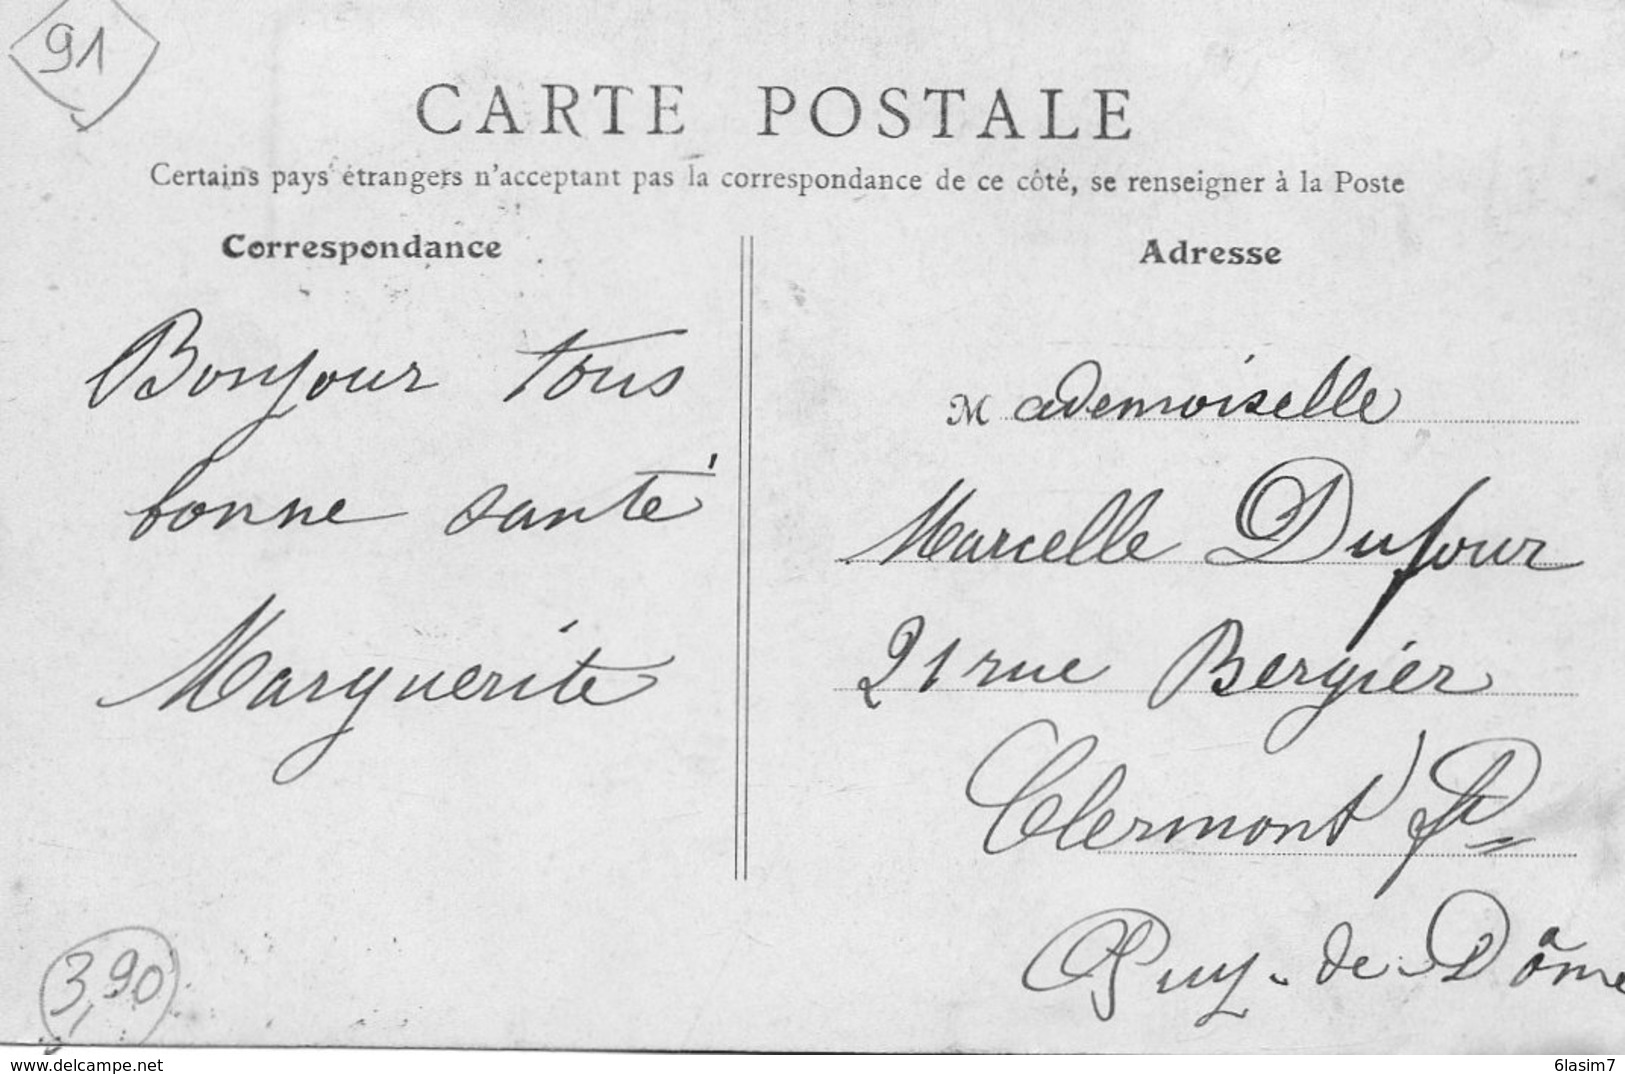 91
CARTE POSTALE
Certains pays étrangers n'acceptant pas la correspondance de ce côté, se renseigner à la Poste
Correspondance
Bonjour tous
bonne santé
Marguerite
3,90
Adresse
Mademoiselle
Marcelle Dufour
21 rue Bergier
Clermont Fd
Puy-de-Dôme
www.delcampe.net
6lasim7